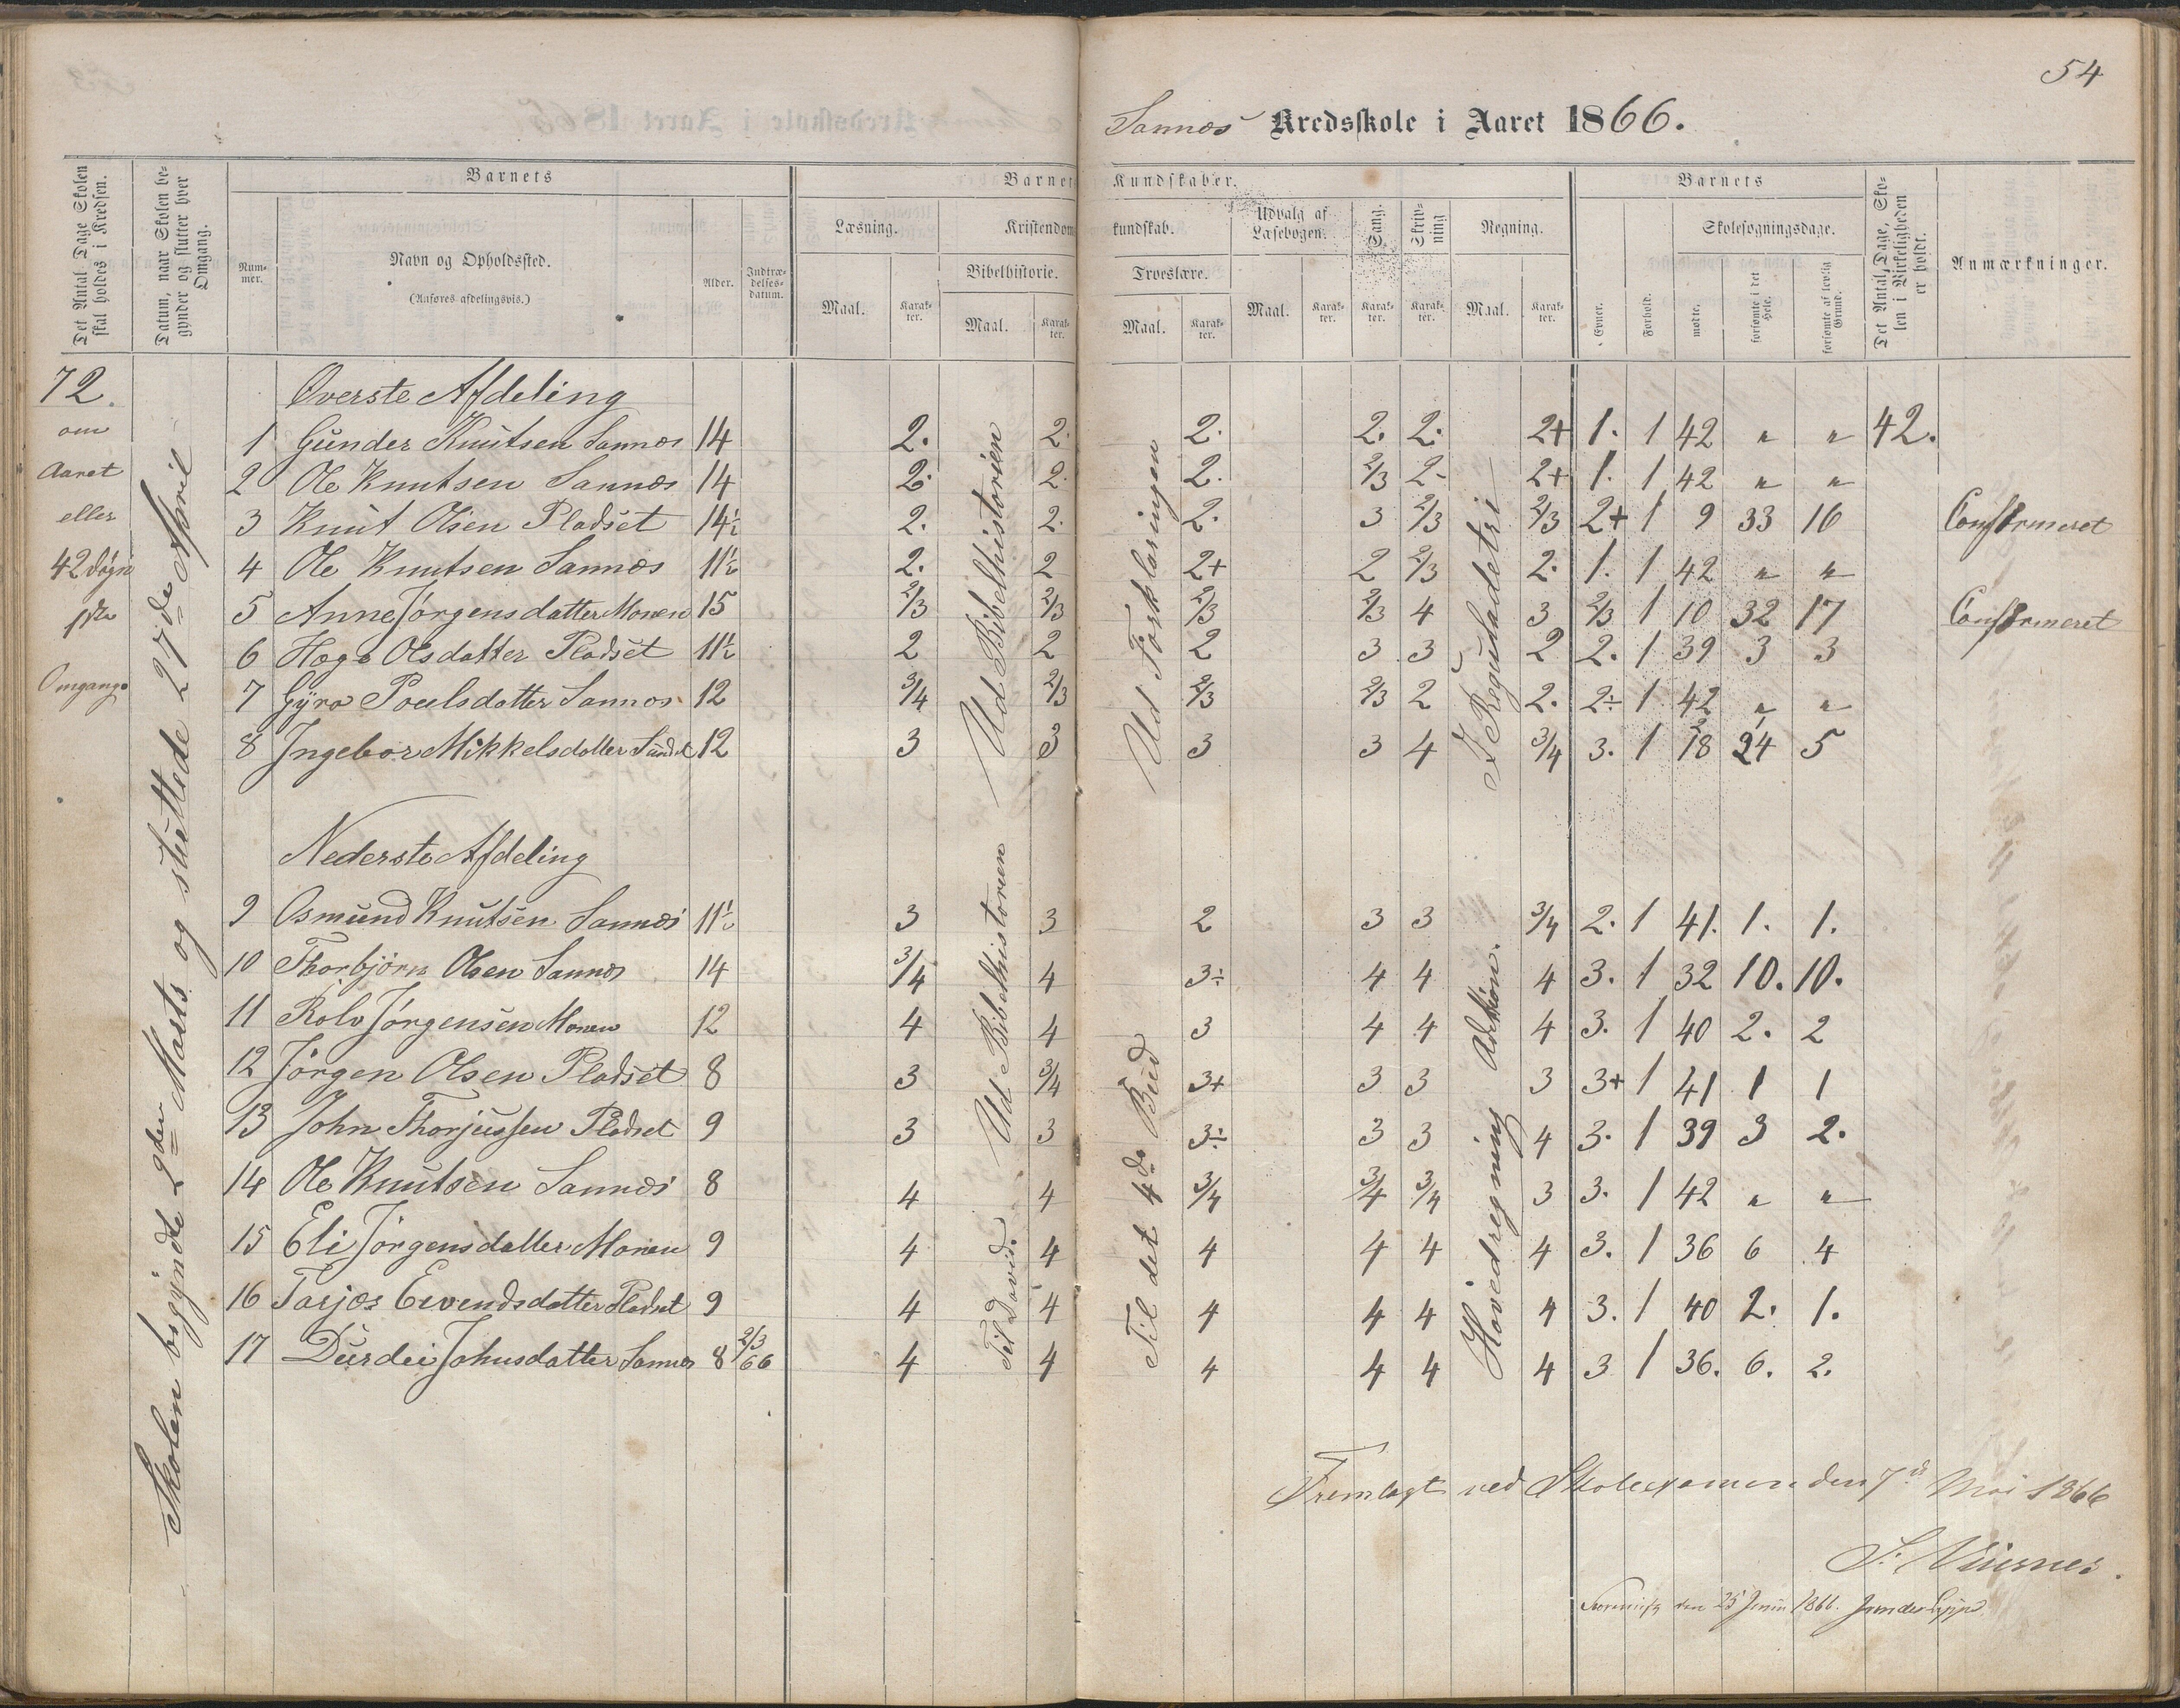 54
Sannes Kredsskole i Aaret 1866.
Det Antal Dage Skolen skal holdes i Kredsen.
Datum, naar Skolen begynder og slutter hver Omgang.
Barnets
Nummer.
Navn og Opholdssted.
(Anføres afdelingsvis.)
Alder.
Indtrædelsesdatum.
Barnets Kundskaber.
Læsning.
Maal.
Karakter.
Kristendomskundskab.
Bibelhistorie.
Maal.
Karakter.
Troeslære.
Maal.
Karakter.
Udvalg af Læsebogen.
Maal.
Karakter.
Sang.
Karakter.
Skrivning
Karakter.
Regning.
Maal.
Karakter.
Barnets
Evner.
Forhold.
Skolesøgningsdage.
mødte.
forsømte i det Hele.
forsømte af lovlig Grund.
Det Antal Dage, Skolen i Virkeligheden er holdt.
Anmærkninger.
72.
om
Aaret
eller
42 døgn
Omgang
Skolen begyndte 2den Marts og sluttede 27de April
Ud Bibelhistorien
Ud Forklaringen
I Reguladetri
Øverste Afdeling
1 Gunder Knutsen Sannes 14 2. 2. 2. 2. 2. 2+ 1. 1 42 " " 42.
2 Ole Knutsen Sannes 14 2. 2. 2. 2/3 2- 2+ 1. 1 42 " "
3 Knut Olsen Pladset 14½ 2. 2. 2. 3 2/3 2/3 2+ 1 9 33 16 Confirmeret
4 Ole Knutsen Sannes 11½ 2. 2 2+ 2 2/3 2. 1. 1 42 " "
5 Anne Jørgensdatter Monen 15 2/3 2/3 2/3 2/3 4 3 2/3 1 10 32 17 Confirmeret
6 Hæge Olsdatter Pladset 11½ 2 2 2 3 3 2 2. 1 39 3 3
7 Gyro Poulsdatter Sannes 12 3/4 2/3 2/3 2/3 2 2. 2÷ 1 42 " "
8 Ingebor Mikkelsdatter Sundet 12 3 3 3 3 4 3/4 3. 1 18 24 5
Nederste Afdeling
Ud Bibelhistorien
Til David.
Til det 4de Bud
Hovedregning Adition.
9 Osmund Knutsen Sannes 11½ 3 3 2 3 3 3/4 2. 1 41. 1. 1.
10 Thorbjørn Olsen Sannes 14 3/4 4 3÷ 4 4 4 3. 1 32 10. 10.
11 Rolv Jørgensen Monen 12 4 4 3 4 4 4 3. 1 40 2. 2
12 Jørgen Olsen Pladset 8 3 3/4 3+ 3 3 3 3+ 1 41 1 1
13 John Thorjussen Pladset 9 3 3 3÷ 3 3 4 3. 1 39 3 2.
14 Ole Knutsen Sannes 8 4 4 3/4 3/4 3/4 3 3. 1 42 " "
15 Eli Jørgensdatter Monen 9 4 4 4 4 4 4 3. 1 36 6 4
16 Tarjer Eivendsdatter Pladset 9 4 4 4 4 4 4 3. 1 40 2. 1.
17 Durdei Johnsdatter Sannes 8 2/3 66 4 4 4 4 4 4 3 1 36. 6. 2.
Fremlagt ved Skoleexamen den 7de Mai 1866
den 25 Juni 1866.